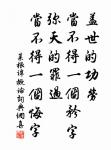 蓋世的功勞
當不得一個矜字
彌天的罪過
當不得一個悔字
菜根譚概論句典網集